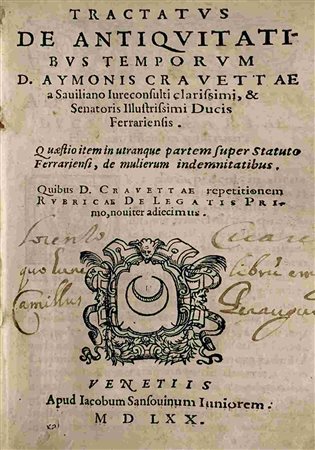 TRACTATVS
DE ANTIQVITATI-
BVS TEMPORVM
D. AYMONIS CRAVETTAE
a Sauiliano Iureconsulti clarissimi, &
Senatoris Illustrissimi Ducis
Ferrariensis.
Quæstio item in utranque partem super Statuto
Ferrariensi, de mulierum indemnitatibus.
Quibus D. CRAVETTAE repetitionem
RVBRICAE DE LEGATIS PRI-
mo, nouiter adiecimus.
quo
librũ
Camillus
VENETIIS
Apud Iacobum Sansouinum Iuniorem.
M D LXX.